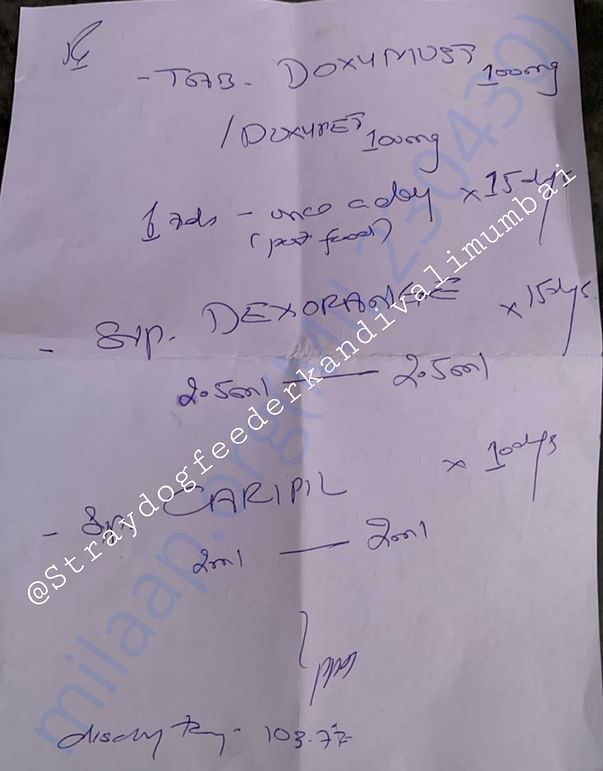 Rx
- TAB. DOXYMUST 100mg
/ DOXYPET 100mg
1 tab - once a day x 15 days
(post food)
- Syp. DEXORANGE x 15dys
2.5ml — 2.5ml
- Syp CARIPIL x 10dys
2ml — 2ml
103.7
@Straydogfeederkandivalimumbai
milaap.org(MIL230430)